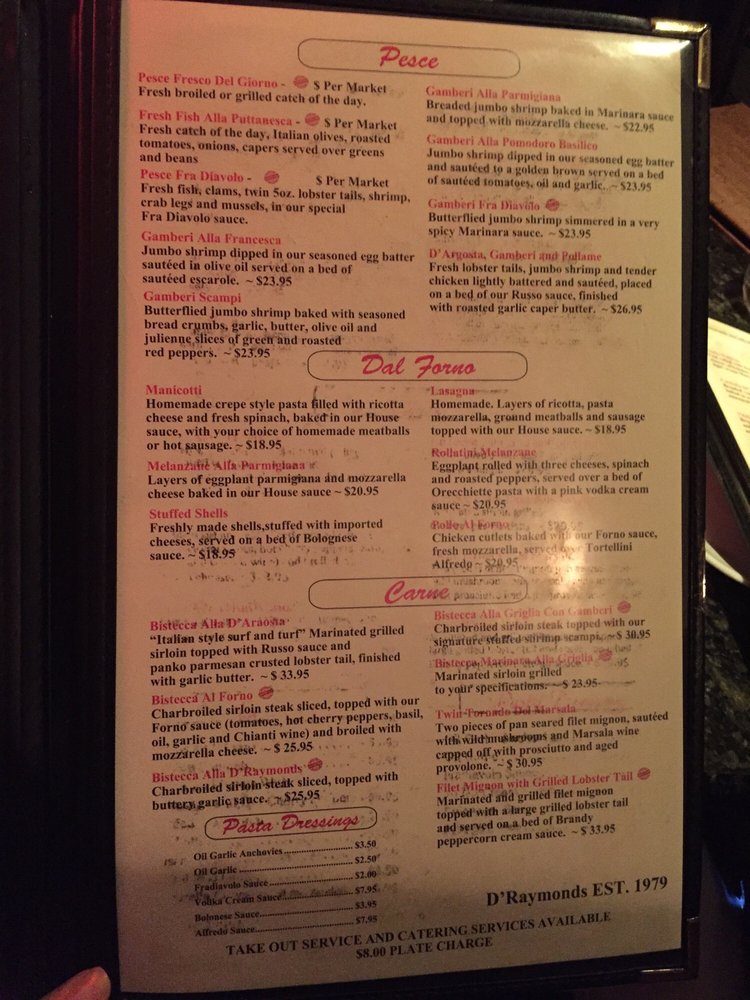 Pesce
Pesce Fresco Del Giorno - $ Per Market
Fresh broiled or grilled catch of the day.
Fresh Fish Alla Puttanesca - $ Per Market
Fresh catch of the day, Italian olives, roasted
tomatoes, onions, capers served over greens
and beans
Pesce Fra Diavolo - $ Per Market
Fresh fish, clams, twin 5oz. lobster tails, shrimp,
crab legs and mussels, in our special
Fra Diavolo sauce.
Gamberi Alla Francesca
Jumbo shrimp dipped in our seasoned egg batter
sautéed in olive oil served on a bed of
sautéed escarole. ~ $23.95
Gamberi Scampi
Butterflied jumbo shrimp baked with seasoned
bread crumbs, garlic, butter, olive oil and
julienne slices of green and roasted
red peppers. ~ $23.95
Gamberi Alla Parmigiana
Breaded jumbo shrimp baked in Marinara sauce
and topped with mozzarella cheese. ~ $22.95
Gamberi Alla Pomodoro Basilico
Jumbo shrimp dipped in our seasoned egg batter
and sautéed to a golden brown served on a bed
of sautéed tomatoes, oil and garlic. ~ $23.95
Gamberi Fra Diavolo
Butterflied jumbo shrimp simmered in a very
spicy Marinara sauce. ~ $23.95
D'Argosta, Gamberi and Pollame
Fresh lobster tails, jumbo shrimp and tender
chicken lightly battered and sautéed, placed
on a bed of our Russo sauce, finished
with roasted garlic caper butter. ~ $26.95
Dal Forno
Manicotti
Homemade crepe style pasta filled with ricotta
cheese and fresh spinach, baked in our House
sauce, with your choice of homemade meatballs
or hot sausage. ~ $18.95
Melanzane Alla Parmigiana
Layers of eggplant parmigiana and mozzarella
cheese baked in our House sauce ~ $20.95
Stuffed Shells
Freshly made shells,stuffed with imported
cheeses, served on a bed of Bolognese
sauce. ~ $18.95
Lasagna
Homemade. Layers of ricotta, pasta
mozzarella, ground meatballs and sausage
topped with our House sauce. ~ $18.95
Rollatini Melanzane
Eggplant rolled with three cheeses, spinach
and roasted peppers, served over a bed of
Orecchiette pasta with a pink vodka cream
sauce ~ $20.95
Pollo Al Forno
Chicken cutlets baked with our Forno sauce,
fresh mozzarella, served over Tortellini
Alfredo ~ $20.95
Carne
Bistecca Alla D'Araosta
"Italian style surf and turf" Marinated grilled
sirloin topped with Russo sauce and
panko parmesan crusted lobster tail, finished
with garlic butter. ~ $ 33.95
Bistecca Al Forno
Charbroiled sirloin steak sliced, topped with our
Forno sauce (tomatoes, hot cherry peppers, basil,
oil, garlic and Chianti wine) and broiled with
mozzarella cheese. ~ $ 25.95
Bistecca Alla D'Raymonds
Charbroiled sirloin steak sliced, topped with
buttery garlic sauce. ~ $25.95
Bistecca Alla Griglia Con Gamberi
Charbroiled sirloin steak topped with our
signature stuffed shrimp scampi. ~ $ 30.95
Bistecca Marinara Alla Griglia
Marinated sirloin grilled
to your specifications. ~ $ 23.95
Twin Torondo Dol Marsala
Two pieces of pan seared filet mignon, sautéed
with wild mushrooms and Marsala wine
capped off with prosciutto and aged
provolone. ~ $ 30.95
Filet Mignon with Grilled Lobster Tail
Marinated and grilled filet mignon
topped with a large grilled lobster tail
and served on a bed of Brandy
peppercorn cream sauce. ~ $ 33.95
Pasta Dressings
Oil Garlic Anchovies........ $3.50
Oil Garlic........ $2.50
Fradiavolo Sauce........ $2.00
Vodka Cream Sauce........ $7.95
Bolonese Sauce........ $3.95
Alfredo Sauce........ $7.95
D'Raymonds EST. 1979
TAKE OUT SERVICE AND CATERING SERVICES AVAILABLE
$8.00 PLATE CHARGE